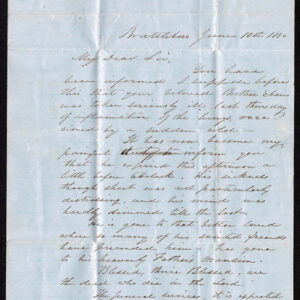 Brattleboro June 10th 1850
My Dear Sir.
You have
been informed I suppose before
this that your beloved Brother Eben
was taken seriously ill last thursday
of inflamation of the lungs, occa
sioned by a sudden cold -
It has now become my
painful duty to inform you
that he expired this afternoon a
little before o'clock. His sickness
though short was not particularly
distressing, and his mind was
hardly dimmed till the last.
He is gone to that better land
where so many of his sainted friends
have preceeded him - has gone
to his heavenly Father's Mansion.
Blessed, thrice Blessed, are
the dead who die in the Lord.
The funeral services it is expected